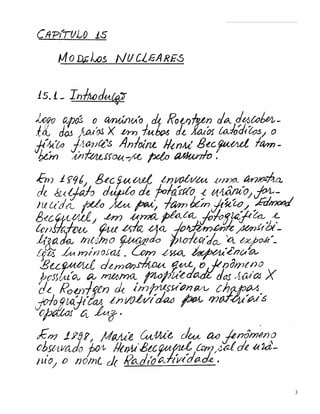 CAPÍTULO 15
MODELOS NUCLEARES
15.1- Introdução
Logo após o anúncio, de Roentgen da descober-
ta dos raios X em tubos de raios Catódicos, o
físico francês Antoine Henri Becquerel tam-
bém interessou-se pelo assunto.
Em 1896, Becquerel envolveu uma amostra
de sulfato duplo de potássio e urânio, for-
necida pelo seu pai, também físico, Edmond
Becquerel, em uma placa fotográfica e
constatou que esta era fortemente sensibi-
lizada mesmo quando protegida a exposi-
ções luminosas. Com essa experiência
Becquerel demonstrou que, o fenômeno
possuia a mesma propriedade dos raios X
de Roentgen de impressionar chapas
fotográficas envolvidas por materiais
opacas a luz.
Em 1898, Marie Currie deu ao fenômeno
observado por Henri Becquerel com sal de urâ-
nio, o nome de Radioatividade.
3